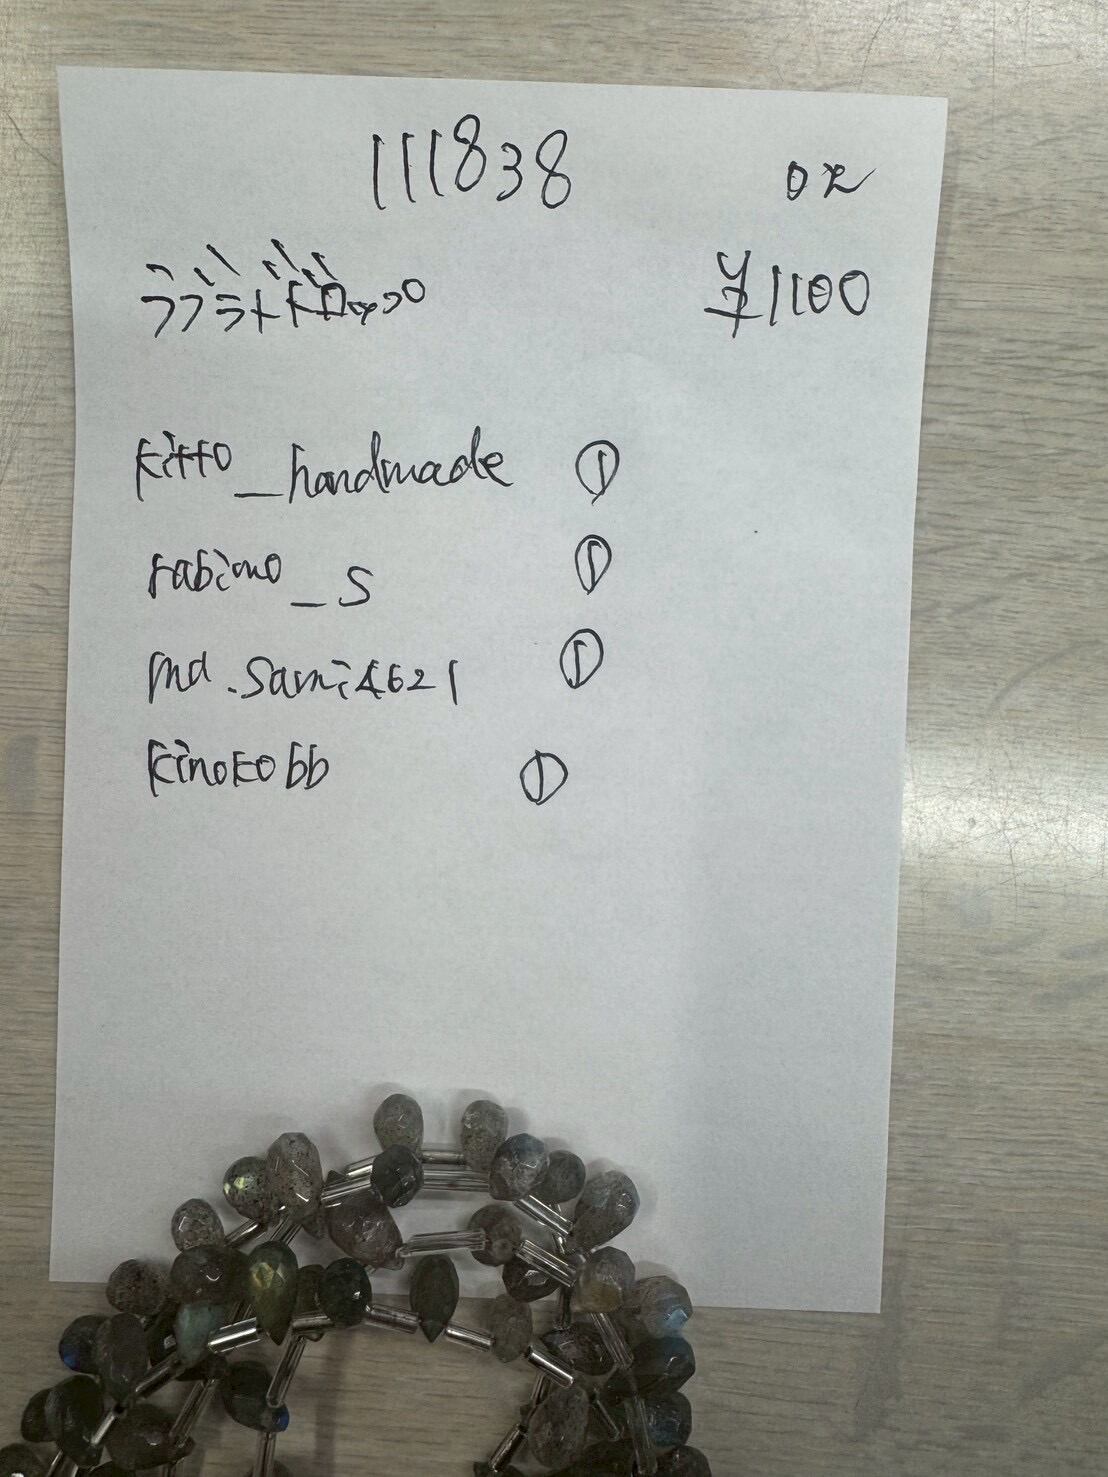 111838 OR
ラブラドドロップ ¥1100
kitto_handmade ①
rabimo_s ①
md.sami4621 ①
kinokobb ①